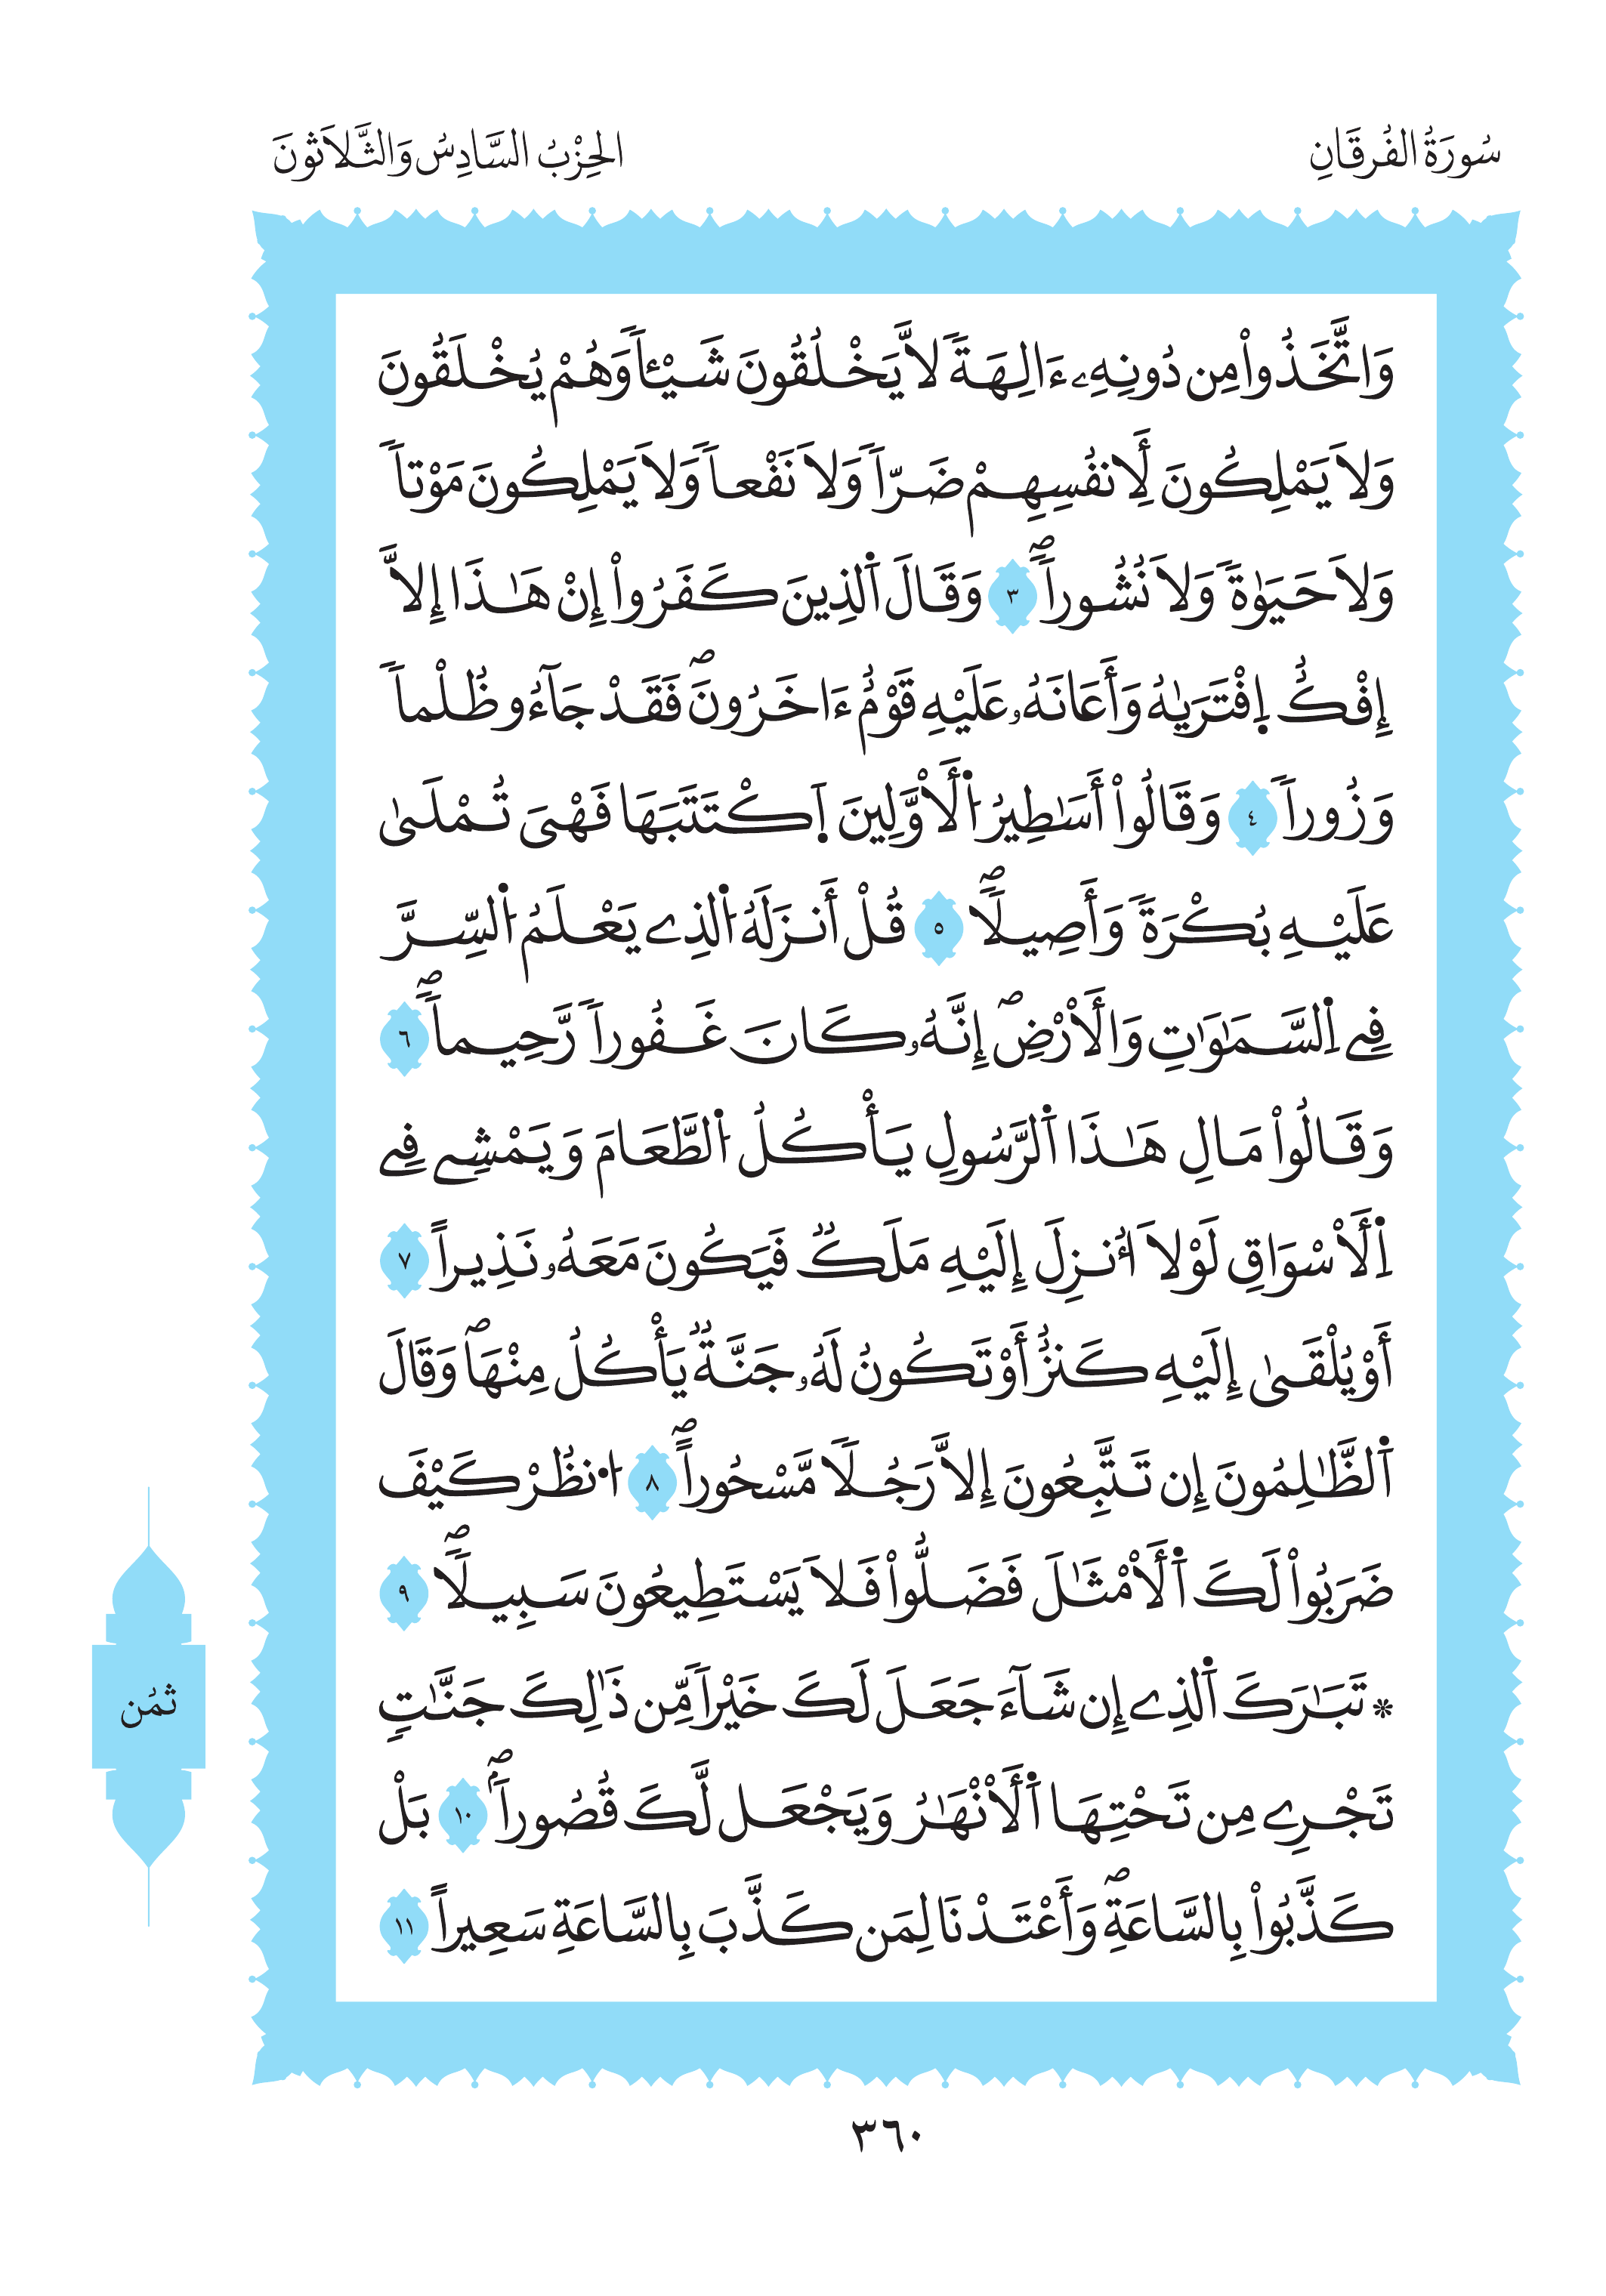 سُورَةُ الفُرقَانِ
الحِزْبُ السَّادِسُ وَالثَّلَاثُونَ
وَاتَّخَذُواْ مِن دُونِهِۦ ءَالِهَةٗ لَّا يَخْلُقُونَ شَيْـٔاٗ وَهُمْ يُخْلَقُونَ
وَلَا يَمْلِكُونَ لِأَنفُسِهِمْ ضَرّاٗ وَلَا نَفْعاٗ وَلَا يَمْلِكُونَ مَوْتاٗ
وَلَا حَيَوٰةٗ وَلَا نُشُوراٗۖ ٣ وَقَالَ اَ۬لذِينَ كَفَرُواْ إِنْ هَٰذَا إِلَّا
إِفْكٌ اِ۪فْتَرَيٰهُ وَأَعَانَهُۥ عَلَيْهِ قَوْمٌ ءَاخَرُونَۖ فَقَدْ جَآءُو ظُلْماٗ
وَزُوراٗ ٤ وَقَالُواْ أَسَٰطِيرُ اُ۬لْأَوَّلِينَ اَ۪كْتَتَبَهَا فَهْىَ تُمْلَىٰ
عَلَيْهِ بُكْرَةٗ وَأَصِيلاٗۖ ٥ قُلْ أَنزَلَهُ اُ۬لذِے يَعْلَمُ اُ۬لسِّرَّ
فِے اِ۬لسَّمَٰوَٰتِ وَالْأَرْضِۖ إِنَّهُۥ كَانَ غَفُوراٗ رَّحِيماٗۖ ٦
وَقَالُواْ مَالِ هَٰذَا اَ۬لرَّسُولِ يَأْكُلُ اُ۬لطَّعَامَ وَيَمْشِے فِے
اِ۬لْأَسْوَاقِ لَوْلَا أُنزِلَ إِلَيْهِ مَلَكٌ فَيَكُونَ مَعَهُۥ نَذِيراً ٧
أَوْ يُلْقَىٰ إِلَيْهِ كَنزٌ أَوْ تَكُونُ لَهُۥ جَنَّةٌ يَأْكُلُ مِنْهَاۖ وَقَالَ
اَ۬لظَّٰلِمُونَ إِن تَتَّبِعُونَ إِلَّا رَجُلاٗ مَّسْحُوراًۖ ٨ اُ۟نظُرْ كَيْفَ
ضَرَبُواْ لَكَ اَ۬لْأَمْثَٰلَ فَضَلُّواْ فَلَا يَسْتَطِيعُونَ سَبِيلاٗۖ ٩
* تَبَٰرَكَ اَ۬لذِے إِن شَآءَ جَعَلَ لَكَ خَيْراٗ مِّن ذَٰلِكَ جَنَّٰتٖ
تَجْرِے مِن تَحْتِهَا اَ۬لْأَنْهَٰرُ وَيَجْعَل لَّكَ قُصُوراَۢۖ ١٠ بَلْ
كَذَّبُواْ بِالسَّاعَةِۖ وَأَعْتَدْنَا لِمَن كَذَّبَ بِالسَّاعَةِ سَعِيراً ١١
ثمُن
٣٦٠